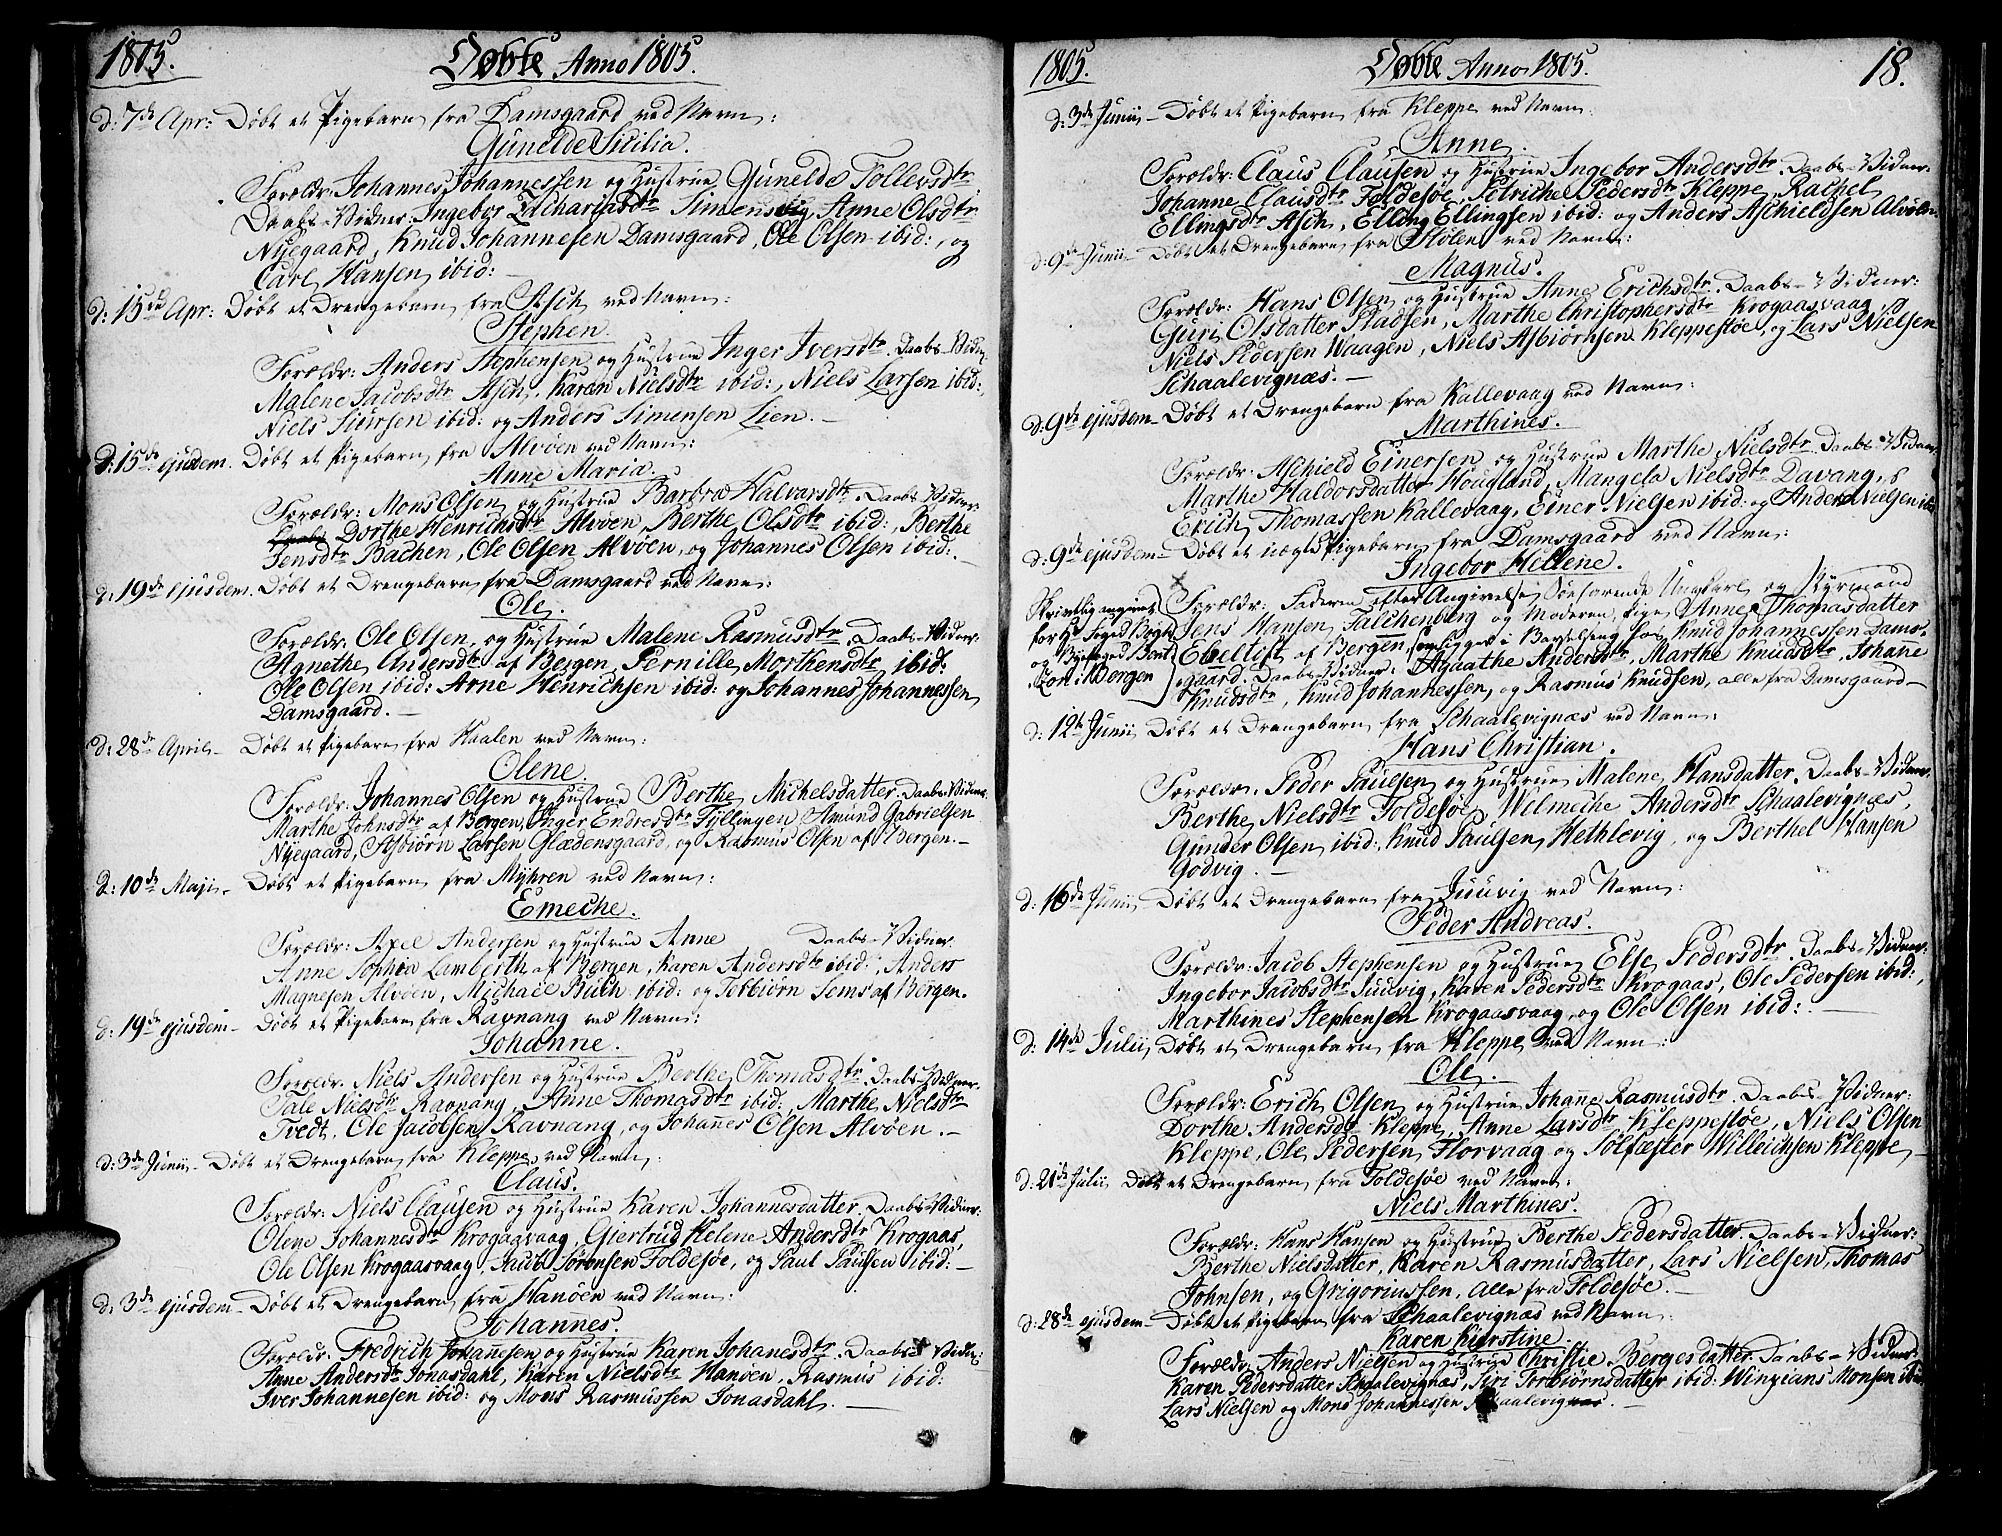 1805.
Døbte Anno 1805.
d: 7de Apr: Døbt et Pigebarn fra Damsgaard ved Navn:
Gunelde Sicilia.
Forældr: Johannes Johannessen og Hustrue Gunelde Tollevsdtr
Daabs-Vidner: Ingebor Zachariasdtr Simensvig, Anne Olsdtr
Nyegaard, Knud Johannesen Damsgaard, Ole Olsen ibid:, og
Carl Hansen ibid: -
d: 15de Apr: Døbt et Drengebarn fra Asch ved Navn:
Stephen.
Forældr: Anders Stephensen og Hustrue Inger Iversdtr. Daabs-Vidn:
Malene Jacobsdtr Asch, Karen Nielsdtr ibid:, Niels Larsen ibid:,
Niels Siursen ibid: og Anders Simensen Lien. -
d: 15de ejusdem. Døbt et Pigebarn fra Alvøen ved Navn:
Anne Maria.
Forældr: Mons Olsen og Hustrue Barbroe Halvarsdtr. Daabs-Vidner:
Dorthe Henrichsdtr Alvøen, Berthe Olsdtr ibid:, Berthe
Jensdtr Bachen, Ole Olsen Alvøen, og Johannes Olsen ibid:. -
d: 19de ejusdem. Døbt et Drengebarn fra Damsgaard ved Navn:
Ole.
Forældr: Ole Olsen og Hustrue Malene Rasmusdtr. Daabs-Vidner:
Agnethe Andersdtr af Bergen, Pernille Morthensdtr ibid:
Ole Olsen ibid: Arne Henrichsen ibid: og Johannes Johannessen
Damsgaard. -
d: 28de April - Døbt et Pigebarn fra Haalen ved Navn:
Olene.
Forældr: Johannes Olsen og Hustrue Berthe Michelsdatter. Daabs-Vidner:
Marthe Johnsdtr af Bergen, Inger Endresdtr Fyllingen, Amund Gabrielsen
Nyegaard, Asbiørn Larsen Glædensgaard, og Rasmus Olsen af Bergen. -
d: 10de Maji - Døbt et Pigebarn fra Myhren ved Navn:
Emeche.
Forældr: Axel Andersen og Hustrue Anne Daabs-Vidner:
Anne Sophia Lamberth af Bergen, Karen Andersdtr ibid:, Anders
Magnesen Alvøen, Michael Buch ibid: og Tebbiørn Sems af Bergen.
d: 19de ejusdem - Døbt et Pigebarn fra Ravnang ved Navn:
Johanne.
Forældr. Niels Andersen og Hustrue Berthe Thomasdtr. Daabs-Vidner.
Tale Nielsdtr Ravnang, Anne Thomasdtr ibid:, Marthe Nielsdtr
Tvedt, Ole Jacobsen Ravnang, og Johañes Olsen Alvøen. -
d: 3de Junii - Døbt et Drengebarn fra Kleppe ved Navn:
Claus.
Forældr: Niels Clausen og Hustrue Karen Johannesdatter. Daabs-Vidner:
Olene Johannesdtr Krogaasvaag, Giertrud Helene Andersdtr Krogaas,
Ole Olsen Krogaasvaag, Jacob Sørensen Foldesøe, og Paul Paulsen ibid: -
d: 3de ejusdem - Døbt et Drengebarn fra Hanøen ved Navn:
Johannes.
Forældr: Fredrich Johañesen og Hustrue Karen Johanesdtr. Daabs Vidn:
Anne Andersdtr Jonasdahl, Karen Nielsdtr Hanøen, Rasmus ibid:
Iver Johannesen ibid: og Mons Rasmussen Jonasdahl. -
1805.
Døbte Anno 1805.
18.
d: 3de Junii - Døbt et Pigebarn fra Kleppe ved Navn:
Anne.
Forældr: Claus Clausen og Hustrue Ingebor Andersdtr. Daabs-Vidner.
Johanne Clausdtr Foldesøe, Petriche Pedersdtr Kleppe, Rachel
Ellingsdtr Asch, Elling Ellingsen ibid: og Anders Aschieldsen Alvøen
d: 9de Junii - Døbt et Drengebarn fra Støle ved Navn:
Magnus.
Forældr: Hans Olsen og Hustrue Anne Erichsdtr. Daabs-Vidner:
Guri Olsdatter Stadsen, Marthe Christophersdtr Krogaasvaag
Niels Pedersen Waagen, Niels Asbiørnsen Kleppestøe, og Lars Nielsen
Schaalevignæs. -
d: 9de ejusdem - Døbt et Drengebarn fra Kallevaag ved Navn:
Marthines.
Forældr: Aschield Einersen og Hustrue Marthe Nielsdtr. Daabs-Vidner
Marthe Haldorsdatter Hougland, Mangela Nielsdtr Davang,
Erich Thomassen Kallevaag, Einer Nielsen ibid: og Anders Nielsen ibid
d: 9de ejusdem - Døbt et uægte Pigebarn fra Damsgaard ved Navn:
Ingebor Hellene.
Skriftlig angivet
for Hr Foged
og Byefoged
i Bergen
Forældr: Faderen efter Angivelse Søefarende Ungkarl og Styrmand
Jens Hansen Falchenberg og Moderen Pige Anne Thomasdatter
Ebeltoft af Bergen, som ligger i Barselseng hos Knud Johannessen Dams-
gaard. Daabs-Vidner: Agnathe Andersdtr, Marthe Knudsdtr, Johane
Knudsdtr, Knud Johannessen, og Rasmus Knudsen, alle fra Damsgaard -
d: 12te Junii Døbt et Drengebarn fra Schaalevignæs ved Navn:
Hans Christian.
Forældr. Peder Paulsen og Hustrue Malene Hansdatter. Daabs-Vidner.
Berthe Nielsdtr Foldesøe, Welmeche Andersdtr Schaalevignæs,
Gunder Olsen ibid:, Knud Paulsen Hethlevig, og Berthel Hansen
Godvig. -
d: 16de Junii Døbt et Drengebarn fra Juuvig ved Navn:
Peder Andreas.
Forældr: Jacob Stephensen og Hustrue Else Pedersdtr. Daabs-Vidner:
Ingebor Jacobsdtr Juuvig, Karen Pedersdtr Krogaas, Ole Pedersen ibid:,
Marthines Stephensen Krogaasvaag, og Ole Olsen ibid:. -
d: 14de Julii Døbt et Drengebarn fra Kleppe ved Navn:
Ole.
Forældr: Erich Olsen og Hustrue Johañe Rasmusdtr. Daabs-Vidner:
Dorthe Andersdtr Kleppe, Anne Larsdtr Kleppestøe, Niels Olsen
Kleppe, Ole Pedersen Florvaag og Solfæster Willeichsen Kleppe -
d: 21de Julii Døbt et Drengebarn fra Foldesøe ved Navn:
Niels Marthines.
Forældr: Hans Hansen og Hustrue Berthe Pedersdatter. Daabs-Vidner:
Berthe Nielsdatter, Karen Rasmusdatter, Lars Nielsen, Thomas
Johnsen, og Grigoriussen, Alle fra Foldesøe. -
d: 28de ejusdem - Døbt et Pigebarn fra Schaalevignæs ved Navn:
Karen Kierstine.
Forældr: Anders Nielsen og Hustrue Christie Bergesdatter. Daabs-Vidner
Karen Pedersdatter Schaalevignæs, Siri Torbiørnsdatter ibid: Wingians Monsen ibid
Lars Nielsen og Mons Johannessen Schaalevignæs. -